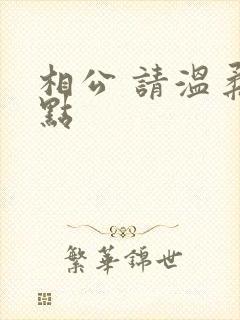 相公 請溫柔
點
繁華錦世